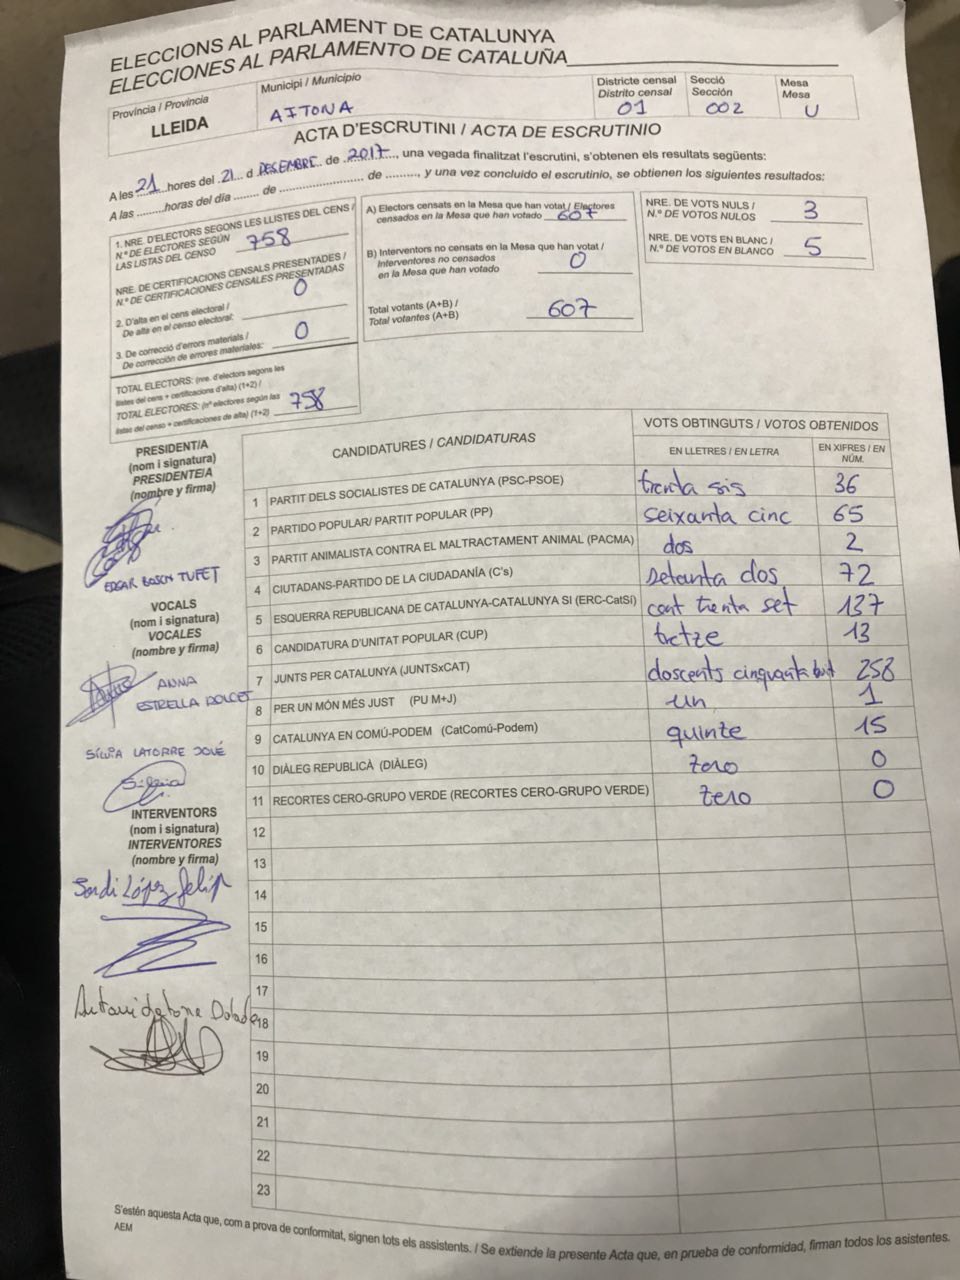 ELECCIONS AL PARLAMENT DE CATALUNYA
ELECCIONES AL PARLAMENTO DE CATALUÑA
Província / Provincia
LLEIDA
Municipi / Municipio
AITONA
Districte censal
Distrito censal
01
Secció
Sección
002
Mesa
Mesa
U
ACTA D'ESCRUTINI / ACTA DE ESCRUTINIO
A les 21 hores del 21 d DESEMBRE de 2017, una vegada finalitzat l'escrutini, s'obtenen els resultats següents:
A las ......... horas del día ........ de ........................ de ........., y una vez concluido el escrutinio, se obtienen los siguientes resultados:
1. NRE. D'ELECTORS SEGONS LES LLISTES DEL CENS /
N.º DE ELECTORES SEGÚN
LAS LISTAS DEL CENSO 758
NRE. DE CERTIFICACIONS CENSALS PRESENTADES /
N.º DE CERTIFICACIONES CENSALES PRESENTADAS
2. D'alta en el cens electoral /
De alta en el censo electoral: 0
3. De correcció d'errors materials /
De corrección de errores materiales: 0
TOTAL ELECTORS: (nre. d'electors segons les
llistes del cens + certificacions d'alta) (1+2) /
TOTAL ELECTORES: (nº electores según las
listas del censo + certificaciones de alta) (1+2) 758
A) Electors censats en la Mesa que han votat / Electores
censados en la Mesa que han votado 607
B) Interventors no censats en la Mesa que han votat /
Interventores no censados
en la Mesa que han votado 0
Total votants (A+B) /
Total votantes (A+B) 607
NRE. DE VOTS NULS /
N.º DE VOTOS NULOS 3
NRE. DE VOTS EN BLANC /
N.º DE VOTOS EN BLANCO 5
PRESIDENT/A
(nom i signatura)
PRESIDENTE/A
(nombre y firma)
EDGAR BOSCH TUFET
VOCALS
(nom i signatura)
VOCALES
(nombre y firma)
ANNA
ESTRELLA DOLCET
SÍLVIA LATORRE JOVÉ
Sílvia
INTERVENTORS
(nom i signatura)
INTERVENTORES
(nombre y firma)
Jordi López Felip
Antoni
CANDIDATURES / CANDIDATURAS
VOTS OBTINGUTS / VOTOS OBTENIDOS
EN LLETRES / EN LETRA
EN XIFRES / EN
NÚM.
1 PARTIT DELS SOCIALISTES DE CATALUNYA (PSC-PSOE) trenta sis 36
2 PARTIDO POPULAR/ PARTIT POPULAR (PP) seixanta cinc 65
3 PARTIT ANIMALISTA CONTRA EL MALTRACTAMENT ANIMAL (PACMA) dos 2
4 CIUTADANS-PARTIDO DE LA CIUDADANÍA (C's) setanta dos 72
5 ESQUERRA REPUBLICANA DE CATALUNYA-CATALUNYA SI (ERC-CatSí) cent trenta set 137
6 CANDIDATURA D'UNITAT POPULAR (CUP) tretze 13
7 JUNTS PER CATALUNYA (JUNTSxCAT) doscents cinquanta buit 258
8 PER UN MÓN MÉS JUST (PU M+J) un 1
9 CATALUNYA EN COMÚ-PODEM (CatComú-Podem) quinte 15
10 DIÀLEG REPUBLICÀ (DIÀLEG) zero 0
11 RECORTES CERO-GRUPO VERDE (RECORTES CERO-GRUPO VERDE) zero 0
12
13
14
15
16
17
18
19
20
21
22
23
S'estén aquesta Acta que, com a prova de conformitat, signen tots els assistents. / Se extiende la presente Acta que, en prueba de conformidad, firman todos los asistentes.
AEM